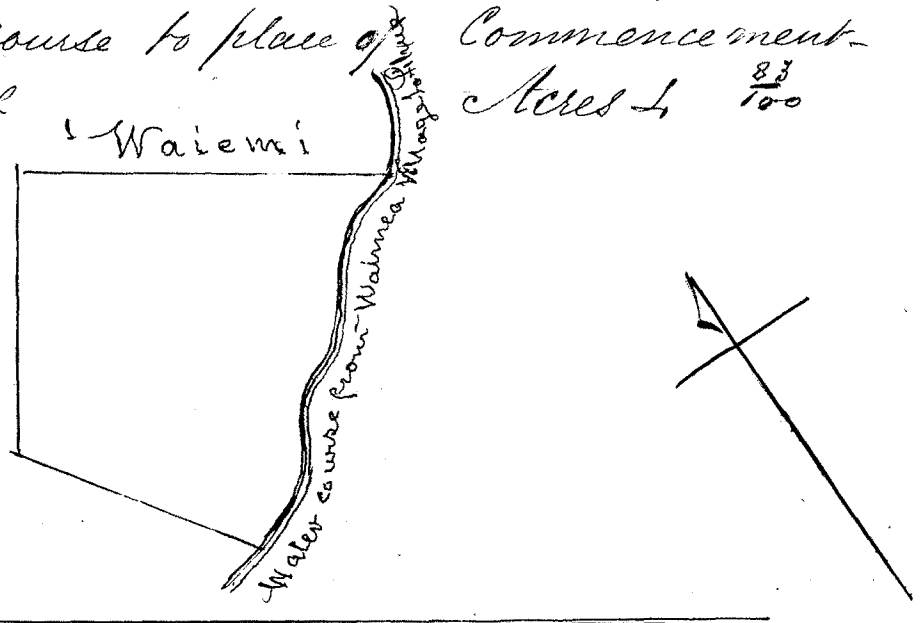 course to place of Commencement
Acres 4 83/100
Waiemi
Water course from Waimea Village to